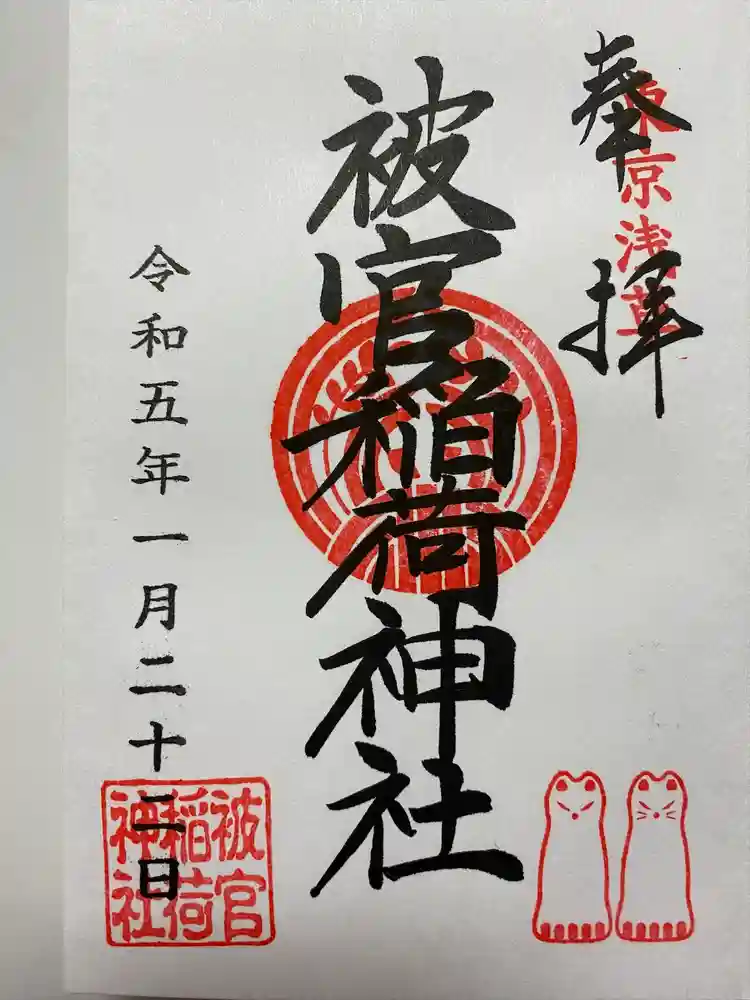 奉拝
東京浅草
被官稲荷神社
令和五年一月二十二日
被官
稲荷
神社